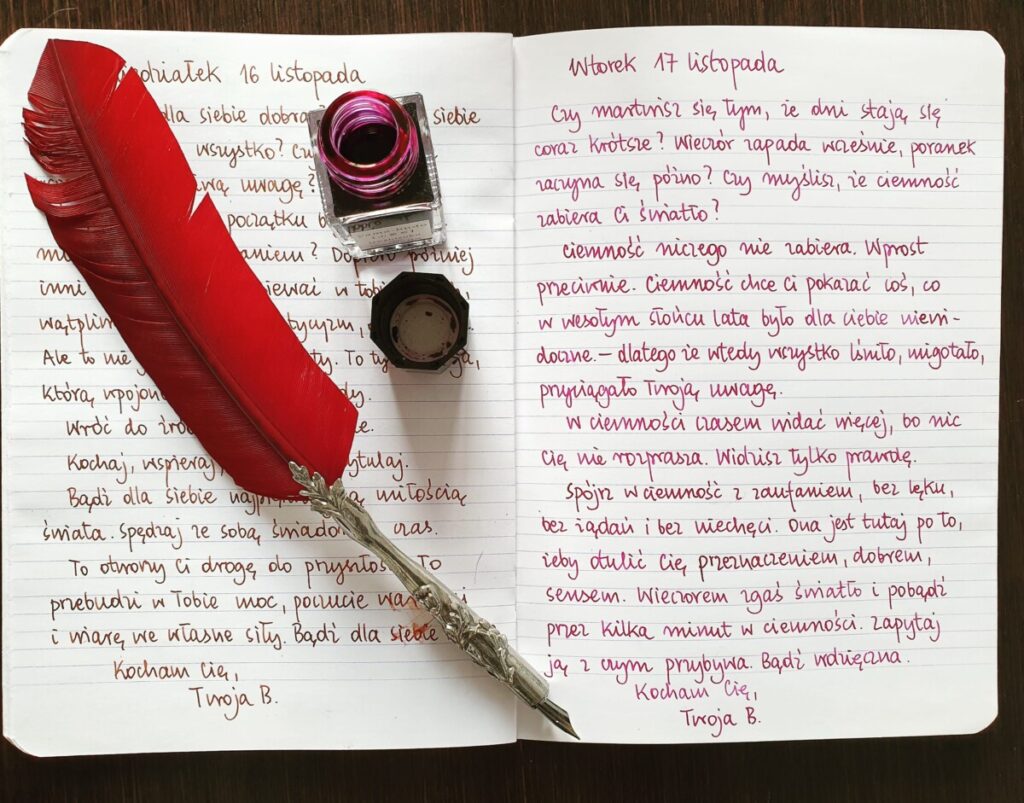 16 listopada
dla siebie siebie
wszystko?
uwagę?
początku
później
inni w
Ale to nie To
którą
Wróć do
Kochaj, wspieraj,
Bądź dla siebie miłością
świata. Spędzaj ze sobą czas.
To otworzy Ci drogę do To
przebudzi w Tobie moc, poczucie
i wiarę we własne siły. Bądź dla siebie
Kocham Cię,
Twoja B.
Wtorek 17 listopada
Czy martwisz się tym, że dni stają się
coraz krótsze? Wieczór zapada wcześnie, poranek
zaczyna się późno? Czy myślisz, że ciemność
zabiera Ci światło?
Ciemność niczego nie zabiera. Wprost
przeciwnie. Ciemność chce Ci pokazać coś, co
w wesołym słońcu lata było dla ciebie niewi-
doczne. – dlatego że wtedy wszystko lśniło, migotało,
przyciągało Twoją uwagę.
W ciemności czasem widać więcej, bo nic
Cię nie rozprasza. Widzisz tylko prawdę.
Spójrz w ciemność z zaufaniem, bez lęku,
bez żądań i bez niechęci. Ona jest tutaj po to,
żeby otulić Cię przeznaczeniem, dobrem,
sensem. Wieczorem zgaś światło i pobądź
przez kilka minut w ciemności. Zapytaj
ją z czym przybywa. Bądź wdzięczna.
Kocham Cię,
Twoja B.